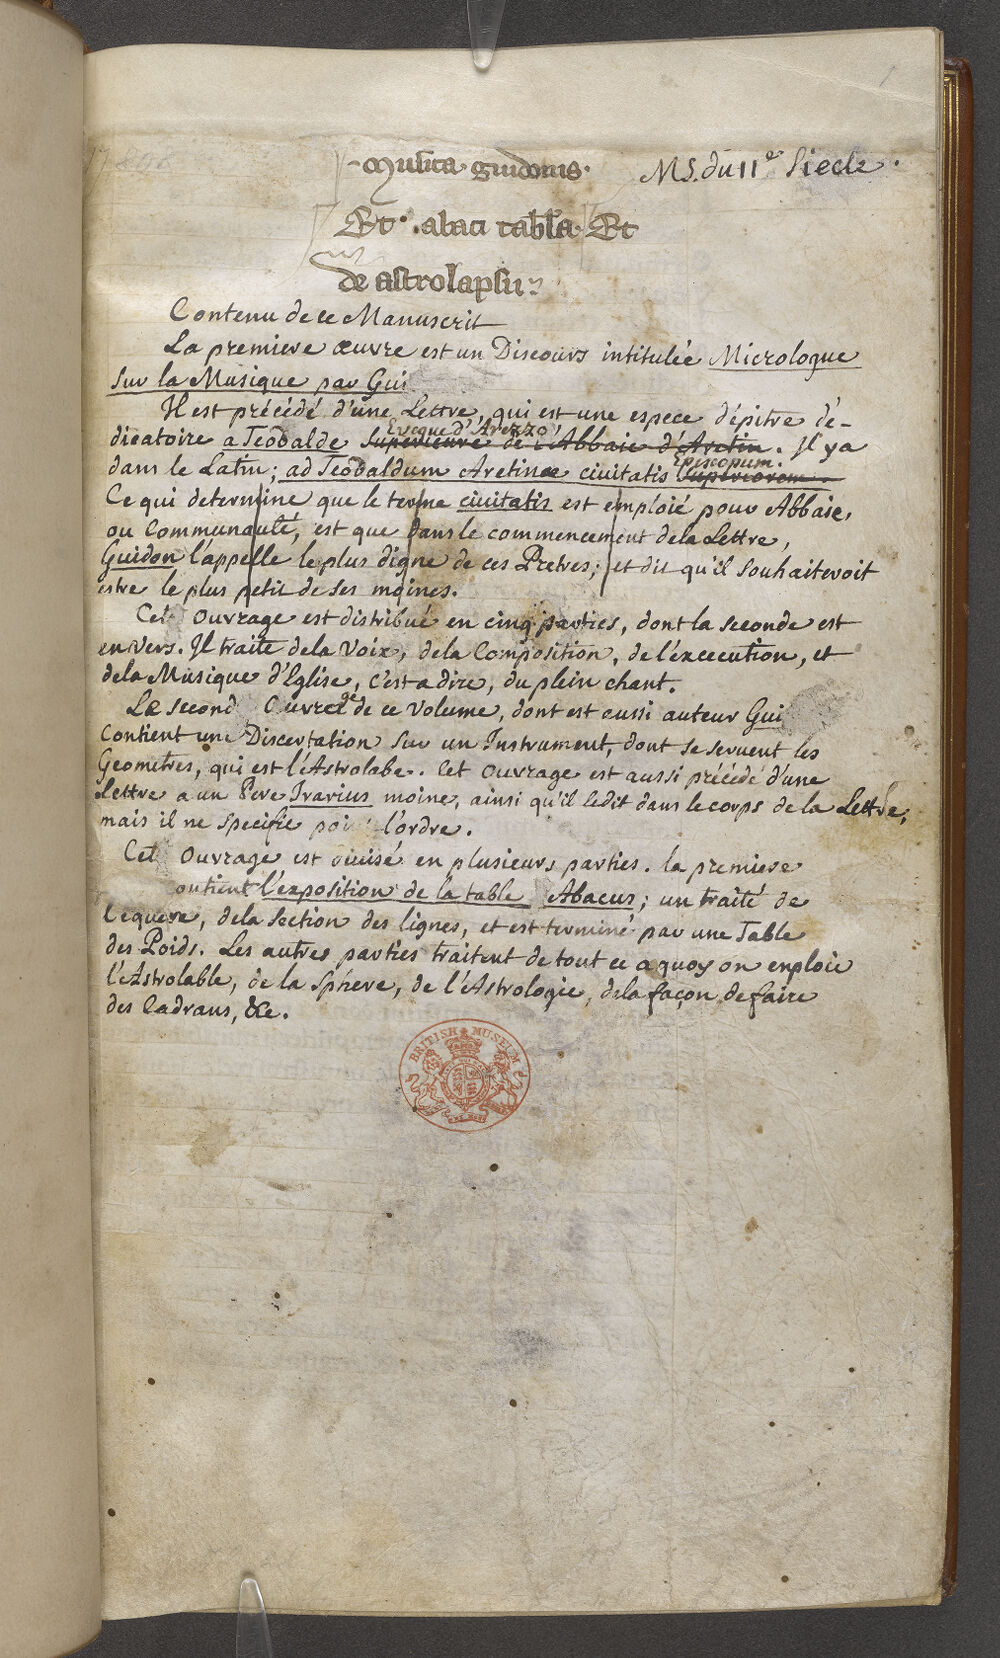 musica guidonis. MS. du 11e Siecle.
Et . abaci tabula Et
de astrolapsu
Contenu de ce Manuscrit
La premiere œuvre est un Discours intitulée Micrologue
sur la Musique par Gui
Il est précédé d'une Lettre, qui est une espece d'épitre dé-
Eveque d'Arezzo
dicatoire a Teobalde Superieure de l'Abbaie d'Aretin. Il y a
Episcopum.
dans le Latin; ad Teobaldum Aretinae ciuitatis Superiorem
Ce qui determine que le terme ciuitatis est emploié pour Abbaie,
ou Communauté, est que dans le commencement de la Lettre,
Guidon l'appelle le plus digne de ces Pretres; et dit qu'il souhaiteroit
estre le plus petit de ses moines.
Cet Ouvrage est distribué en cinq parties, dont la seconde est
en vers. Il traite de la Voix, de la Composition, de l'éxcecution, et
de la Musique d'Eglise, c'est a dire, du plein chant.
Le second Ouvrage de ce Volume, dont est aussi auteur Gui
Contient une Discertation sur un Instrument, dont se seruent les
Geometres, qui est l'Astrolabe. Cet Ouvrage est aussi précédé d'une
Lettre a un Pere Iravius moine, ainsi qu'il le dit dans le corps de la Lettre,
mais il ne specifie poi l'ordre.
Cet Ouvrage est diuisé en plusieurs parties. la premiere
ontient l'exposition de la table Abacus; un traité de
l'equere, de la Section des lignes, et est terminé par une Table
des Poids. Les autres parties traitent de tout ce a quoy on emploie
l'Astrolable, de la Sphere, de l'Astrologie, de la façon de faire
des Cadrans, &c.
BRITISH MUSEUM